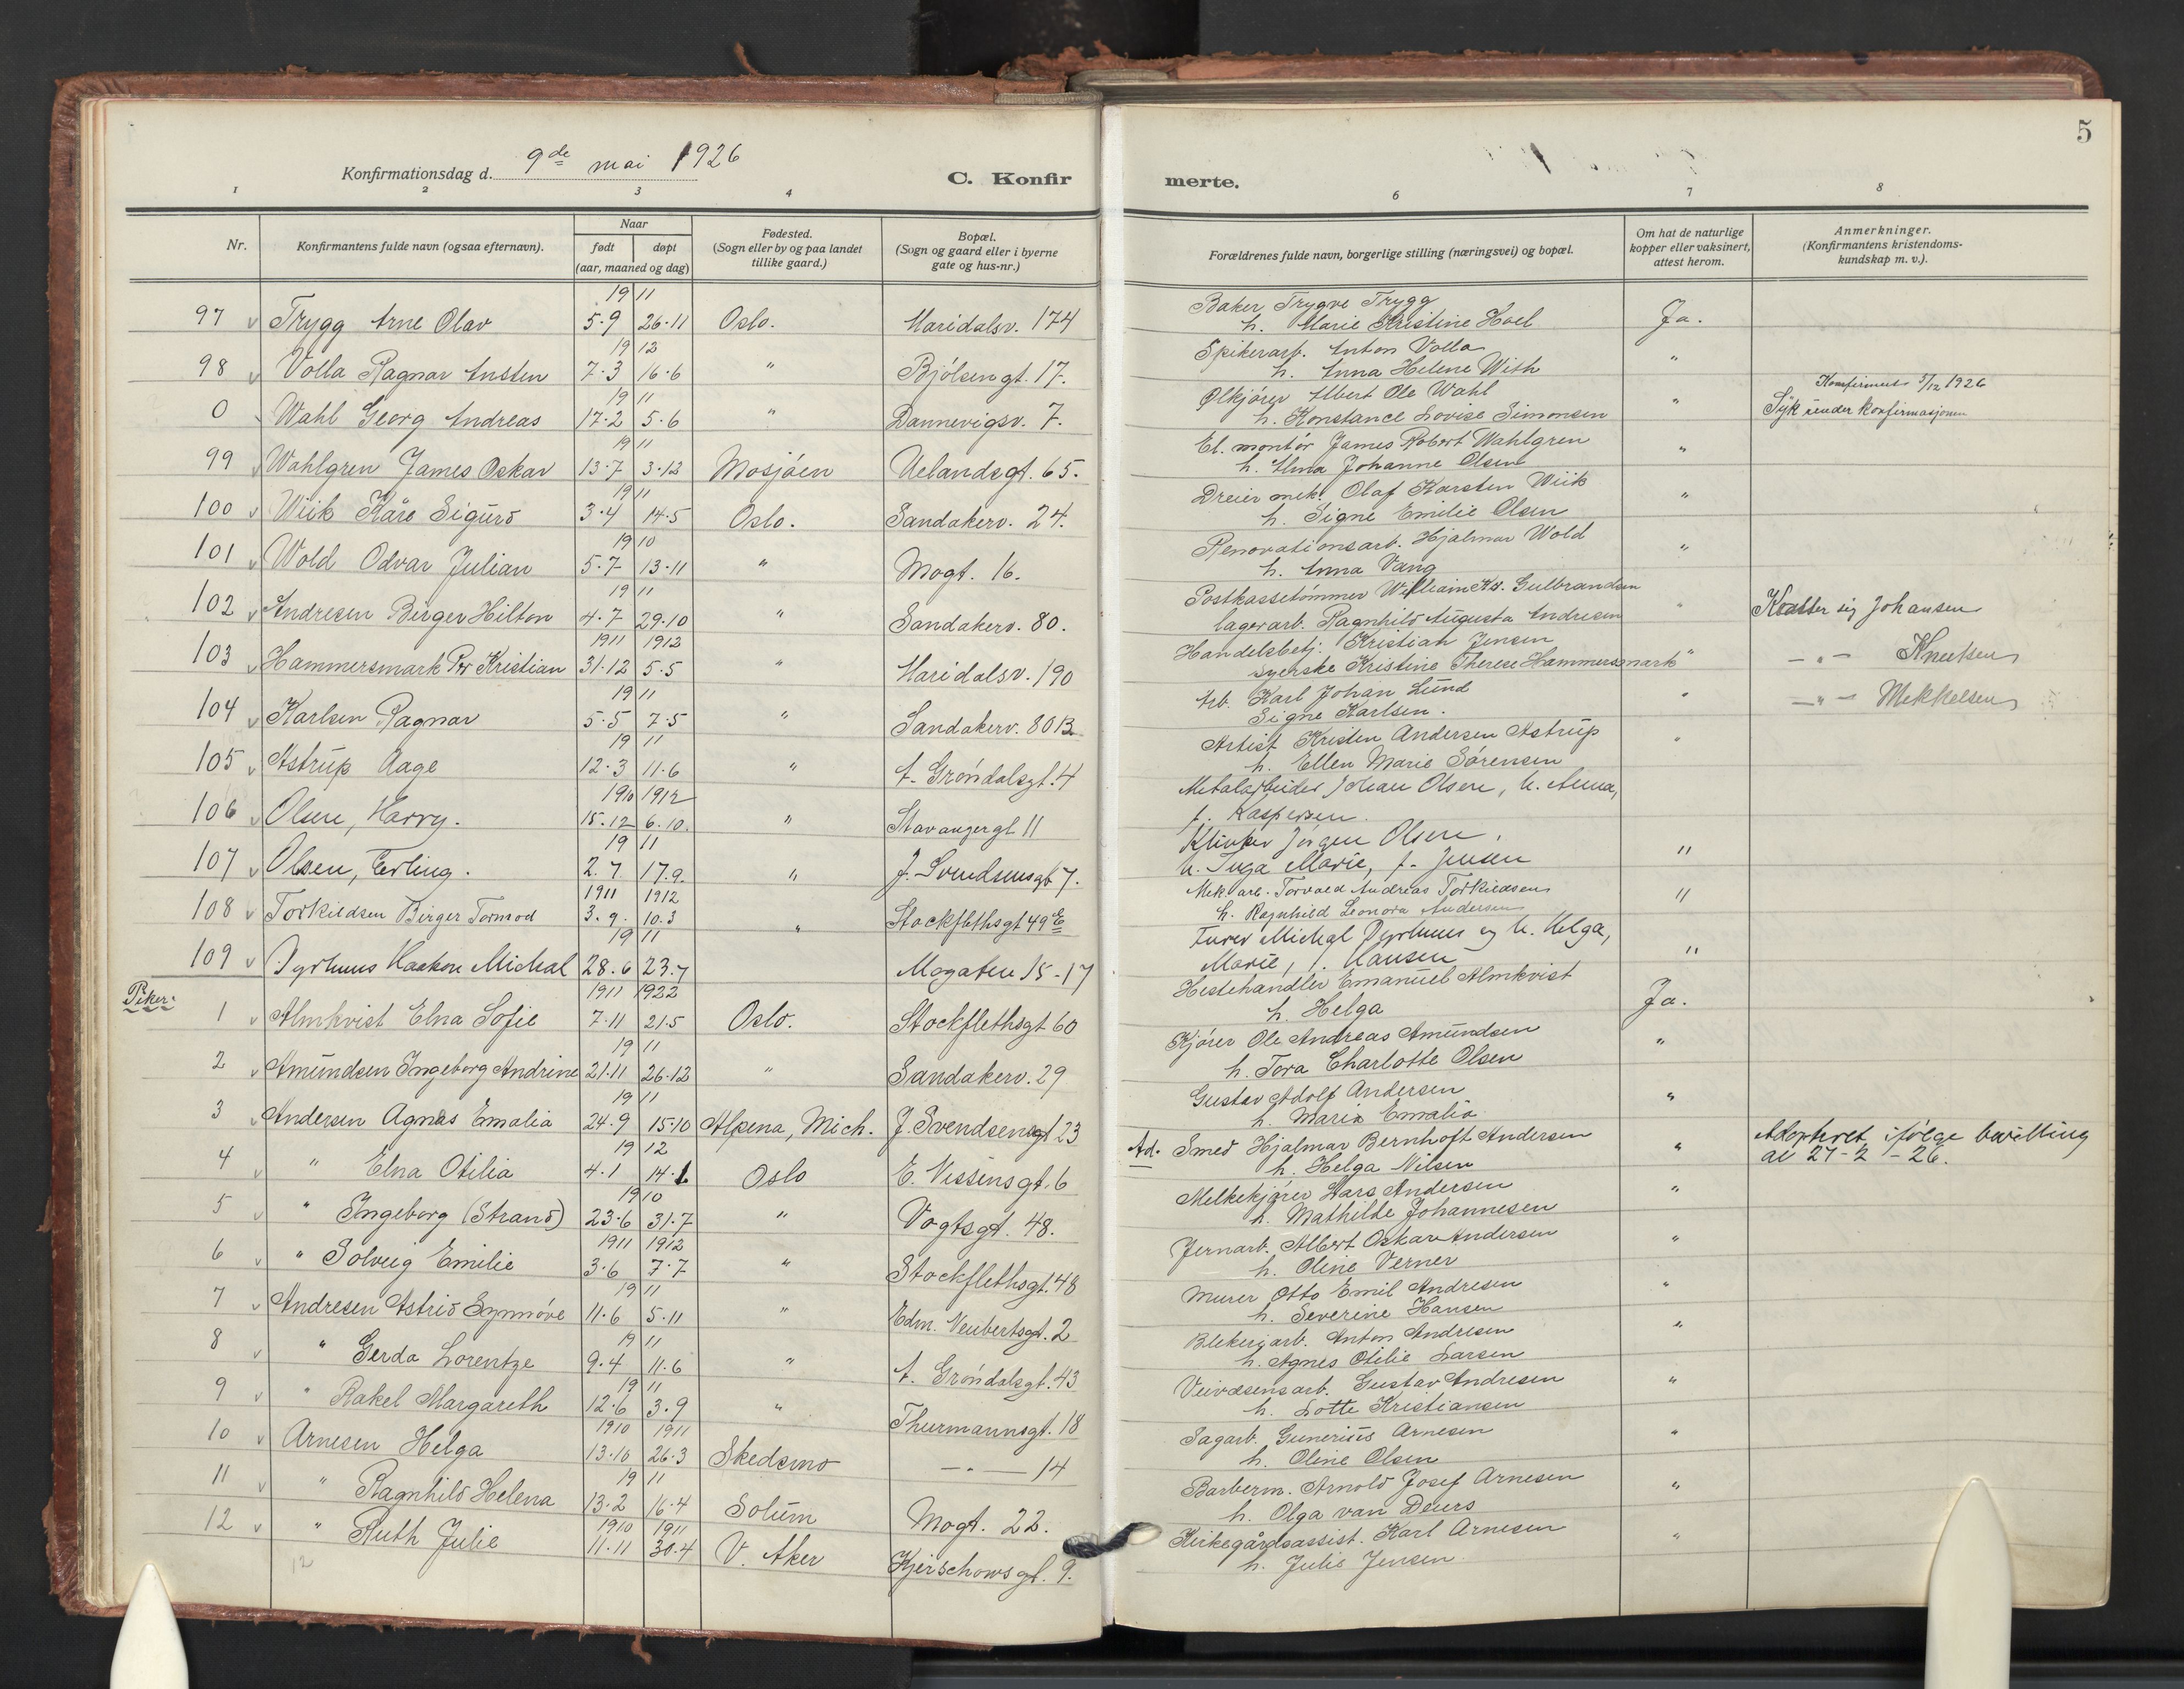 5
Konfirmationsdag d. 9de mai 1926
C. Konfir
merte.
1 2 3 4 6 7 8
Nr.
Konfirmantens fulde navn (ogsaa efternavn).
Naar
født døpt
(aar, maaned og dag)
Fødested.
(Sogn eller by og paa landet
tillike gaard.)
Bopæl.
(Sogn og gaard eller i byerne
gate og hus-nr.)
Forældrenes fulde navn, borgerlige stilling (næringsvei) og bopæl.
Om hat de naturlige
kopper eller vaksinert,
attest herom.
Anmerkninger.
(Konfirmantens kristendoms-
kundskap m. v.).
19 11
97 v Trygg Arne Olav 5.9 26.11 Oslo. Maridalsv. 174
Baker Trygve Trygg
h. Marie Kristine Hoel Ja.
19 12
98 v Volla Ragnar Ansten 7.3 16.6 " Bjølsengt. 17.
Spikerarb. Anton Volla
h. Anna Helene With "
19 11
0 Wahl Georg Andreas 17.2 5.6 " Dannevigsv. 7.
Ølkjører Albert Ole Wahl
h. Konstance Lovise Simonsen "
Konfirmert 5/12 1926
Syk under konfirmasjonen
19 11
99 v Wahlgren James Oskar 13.7 3.12 Mosjøen Uelandsgt. 65.
El. montør James Robert Wahlgren
h. Alma Johanne Olsen "
19 11
100 v Wiik Kåre Sigurd 3.4 14.5 Oslo. Sandakerv. 24.
Dreier mek. Olaf Karsten Wiik
h. Signe Emilie Olsen "
19 10
101 v Wold Odvar Julian 5.7 13.11 " Mogt. 16.
Renovationsarb. Hjalmar Wold
h. Anna Vang "
19 11
102 v Andresen Birger Hilton 4.7 29.10 " Sandakerv. 80.
Postkassetømmer William Kr. Gulbrandsen
lagerarb. Ragnhild Augusta Andresen "
Kaller sig Johansen
1911 1912
103 v Hammersmark Per Kristian 31.12 5.5 " Maridalsv. 190
Handelsbetj. Kristian Jensen
syerske Kristine Therese Hammersmark "
— " — Knutsen
19 11
104 v Karlsen Ragnar 5.5 7.5 " Sandakerv. 80 B.
Arb. Karl Johan Lund
Signe Karlsen. "
— " — Mekkelsen
19 11
105 v Astrup Aage 12.3 11.6 " A. Grøndalsgt. 4
Artist Kristen Andersen Astrup
h. Ellen Marie Sørensen "
1910 1912
106 v Olsen, Harry. 15.12 6.10. " Stavangergt 11
Metalarbeider Johan Olsen, h. Anna,
f. Kaspersen.
19 11
107 v Olsen, Erling. 2.7. 17.9. " J. Svendsensgt 7.
Klinker Jørgen Olsen,
h. Inga Marie, f. Jensen "
1911 1912
108 v Torkildsen Birger Tormod 3.9. 10.3 " Stockflethsgt 49 E
Mek arb. Torvald Andreas Torkildsen
h. Ragnhild Leonora Andersen "
19 11
109 v Dyrhuus Haakon Michal 28.6 23.7 Mogaten 15-17
Michal Dyrhuus og h. Helga,
Marie, f. Hansen "
Piker:
1911 1922
1 v Almkvist Elna Sofie 7.11 21.5 Oslo. Stockflethsgt 60
Hestehandler Emanuel Almkvist
h. Helga Ja.
19 11
2 v Amundsen Ingeborg Andrine 21.11 26.12 " Sandakerv. 29
Kjører Ole Andreas Amundsen
h. Tora Charlotte Olsen "
19 11
3 v Andersen Agnes Emalia 24.9 15.10 Alpena, Mich. J. Svendsensgt 23
Gustav Adolf Andersen
h. Maria Emalia "
19 12
4 v " Elna Otilia 4.1 14.1 Oslo E. Vissensgt. 6
Ad. Smed Hjalmar Bernhoft Andersen
h. Helga Nilsen "
Adopteret ifølge bevilling
av 27-2-26.
19 10
5 v " Ingeborg (Strand) 23.6 31.7 " Vogtsgt. 48.
Melkekjører Lars Andersen
h. Mathilde Johannesen "
1911 1912
6 v " Solveig Emilie 3.6 7.7 " Stockflethsgt. 48
Jernarb. Albert Oskar Andersen
h. Oline Verner "
19 11
7 v Andresen Astrid Synnøve 11.6 5.11 " Edm. Neubertsgt. 2
Murer Otto Emil Andresen
h. Severine Hansen "
19 11
8 v " Gerda Lorentze 9.4 11.6 " A. Grøndalsgt. 43
Blekeriarb. Anton Andresen
h. Agnes Otilie Larsen "
19 11
9 v " Rakel Margareth 12.6 3.9 " Thurmannsgt. 18
Veivæsensarb. Gustav Andresen
h. Lotte Kristiansen "
1910 1911
10 v Arnesen Helga 13.10 26.3 Skedsmo — " — 14
Sagarb. Gunerius Arnesen
h. Oline Olsen "
19 11
11 v " Ragnhild Helena 13.2 16.4 Solum Mogt. 22.
Barberm. Arnold Josef Arnesen
h. Olga van Deurs "
1910 1911
12 v " Ruth Julie 11.11 30.4 V. Aker Kjerschowsgt. 9.
Kirkegårdsassist. Karl Arnesen
h. Julie Jensen "
12